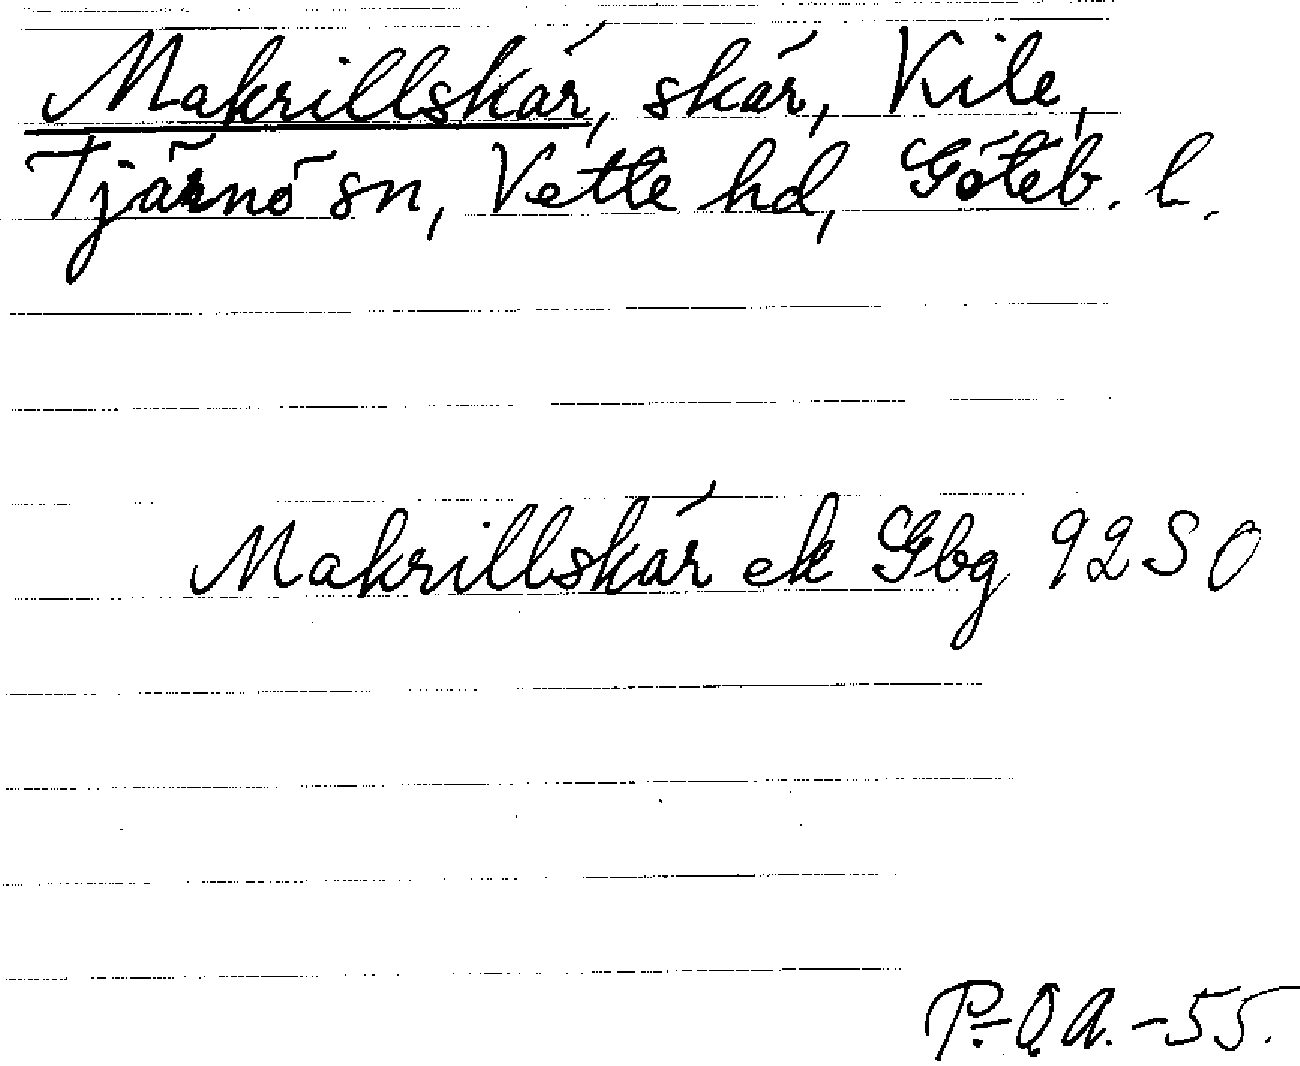 Makrillskär, skär, Kile,
Tjärnö sn, Vette hd, Göteb. l.
Makrillskär ek Gbg 92 SO
P.-O.A. -55.